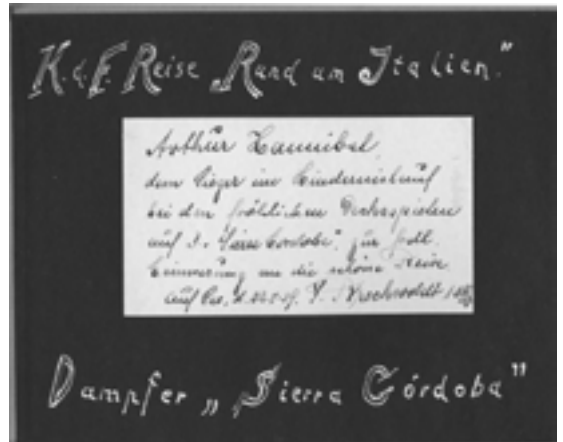 K.d.F. Reise „Rund um Italien."
Arthur Hannibal
dem Sieger im Hindernislauf
bei den fröhlichen Decksspielen
auf D. „Sierra Cordoba" zur frdl.
Erinnerung an die schöne Reise.
auf See, d.
Dampfer „Sierra Córdoba"